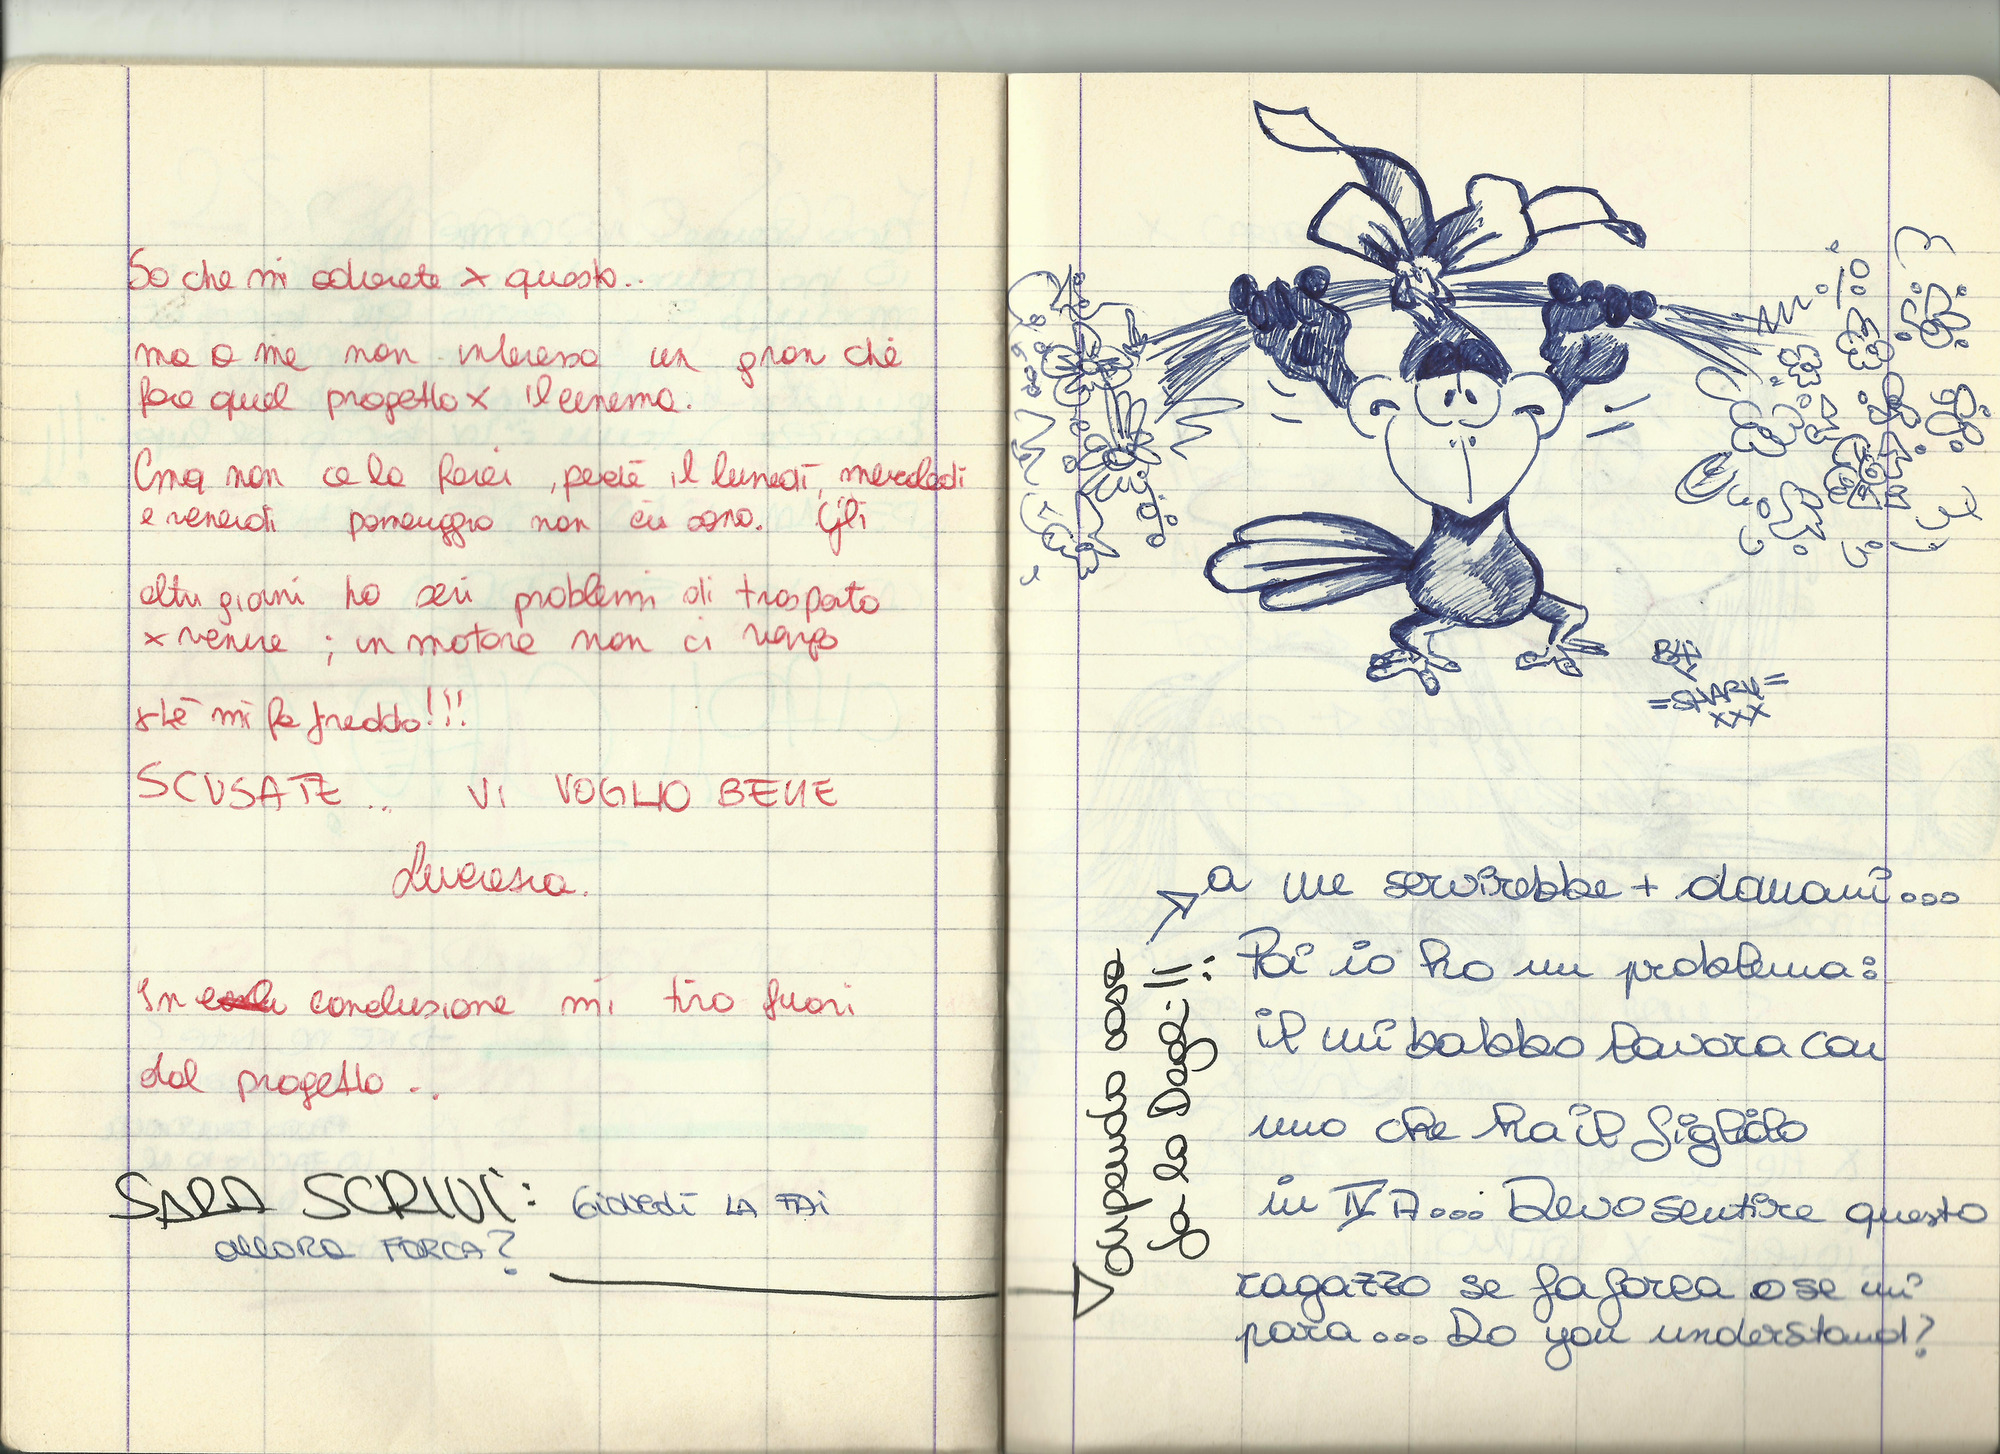 So che mi odierete x questo..
ma a me non interessa un gran chè
fare quel progetto x il cinema.
Cmq non ce la farei, perchè il lunedì, mercoledì
e venerdì pomeriggio non ci sono. Gli
altri giorni ho seri problemi di trasporto
x venire ; in motore non ci vengo
xkè mi fa freddo!!!
SCUSATE... VI VOGLIO BENE
Lucrezia.
In conclusione mi tiro fuori
dal progetto...
SARA SCRIVI: Giovedì LA FAI
allORA FORCA?
BY
=SHARK=
XXX
a me servirebbe + domani...
Poi io ho un problema:
il mi babbo lavora con
uno che ha il figliolo
in IV A... Devo sentire questo
ragazzo se fa forca o se mi
para... Do you understand?
dipende cosa
fa la Degl'II: